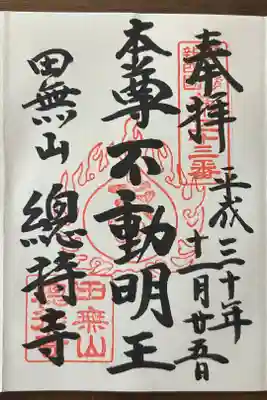 奉拝
平成三十年
十一月廿五日
本尊不動明王
田無山
總持寺
田無山